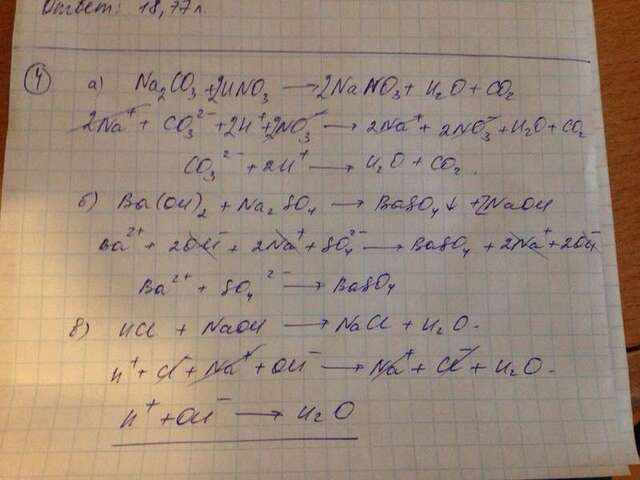 Ответ: 18,77 л.
④ а) Na₂CO₃ + 2HNO₃ → 2NaNO₃ + H₂O + CO₂
2Na⁺ + CO₃²⁻ + 2H⁺ + 2NO₃⁻ → 2Na⁺ + 2NO₃⁻ + H₂O + CO₂
CO₃²⁻ + 2H⁺ → H₂O + CO₂.
б) Ba(OH)₂ + Na₂SO₄ → BaSO₄↓ + 2NaOH
Ba²⁺ + 2OH⁻ + 2Na⁺ + SO₄²⁻ → BaSO₄ + 2Na⁺ + 2OH⁻
Ba²⁺ + SO₄²⁻ → BaSO₄
в) HCl + NaOH → NaCl + H₂O.
H⁺ + Cl⁻ + Na⁺ + OH⁻ → Na⁺ + Cl⁻ + H₂O.
H⁺ + OH⁻ → H₂O